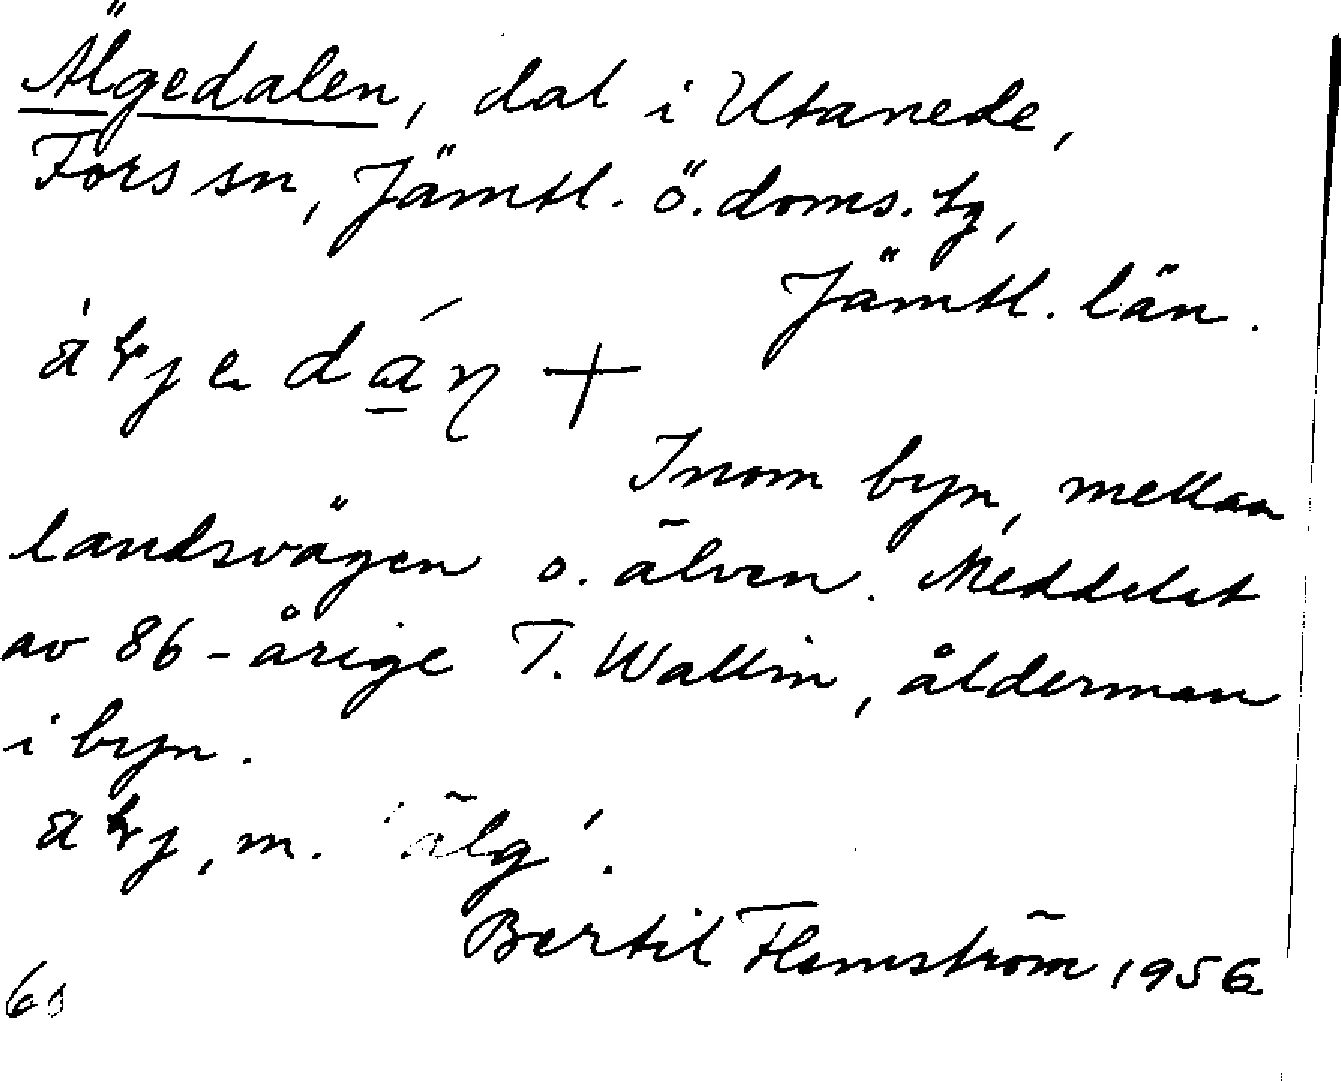 Älgedalen, dal i Utanede,
Fors sn, Jämtl. ö. doms. tg,
Jämtl. län.
Inom byn, mellan
landsvägen o. älven. Meddelat
av 86-årige T. Wallin, ålderman
i byn.
m. 'älg'.
Bertil Flemström 1956